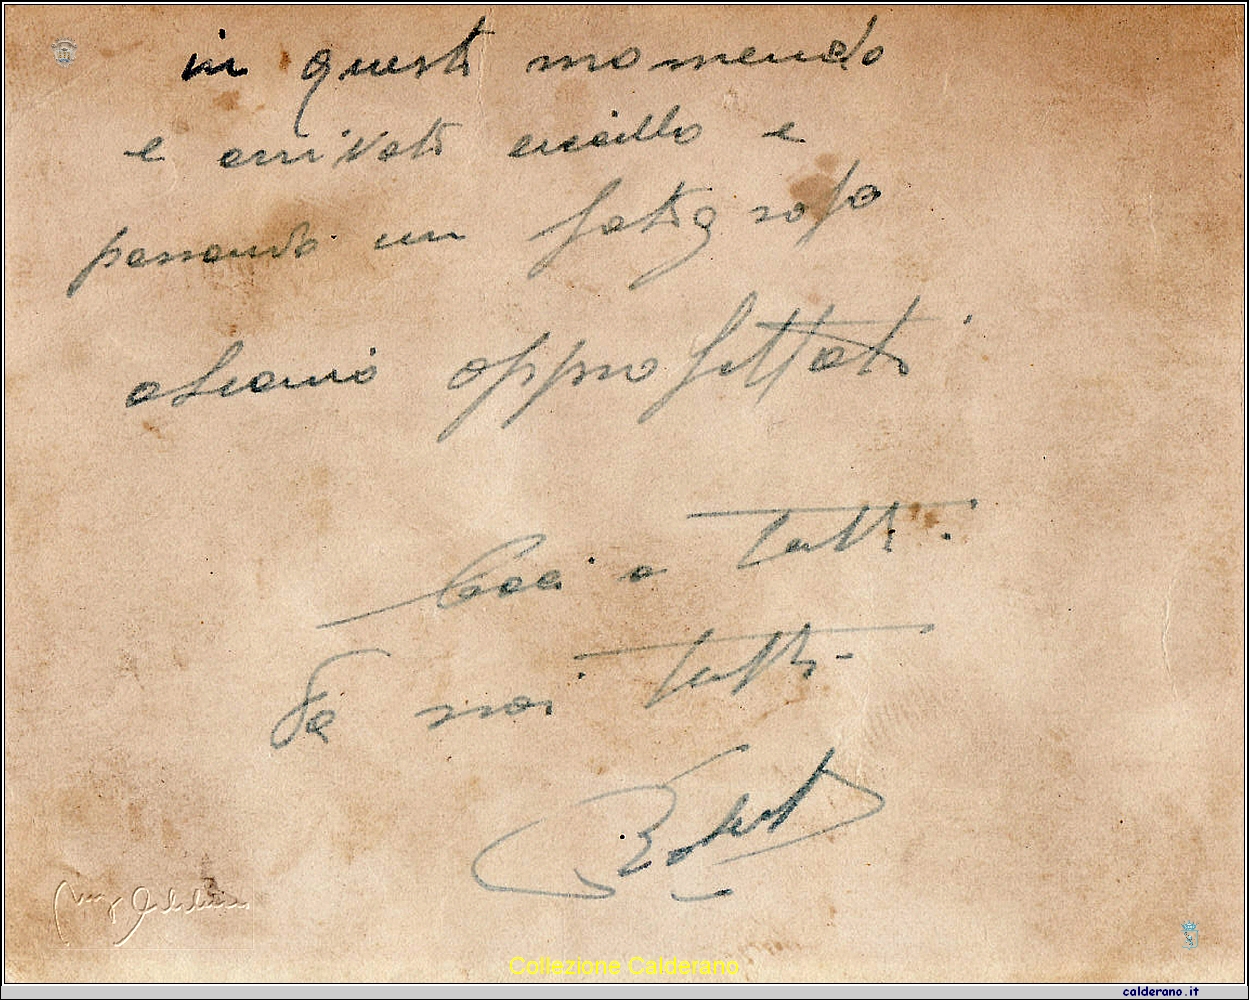 in questo momendo
e arrivato ercaillo e
passando un fotografo
abiamo approfittato.
Baci a tutti.
Da noi tutti-
Robert
Collezione Calderano
calderano.it